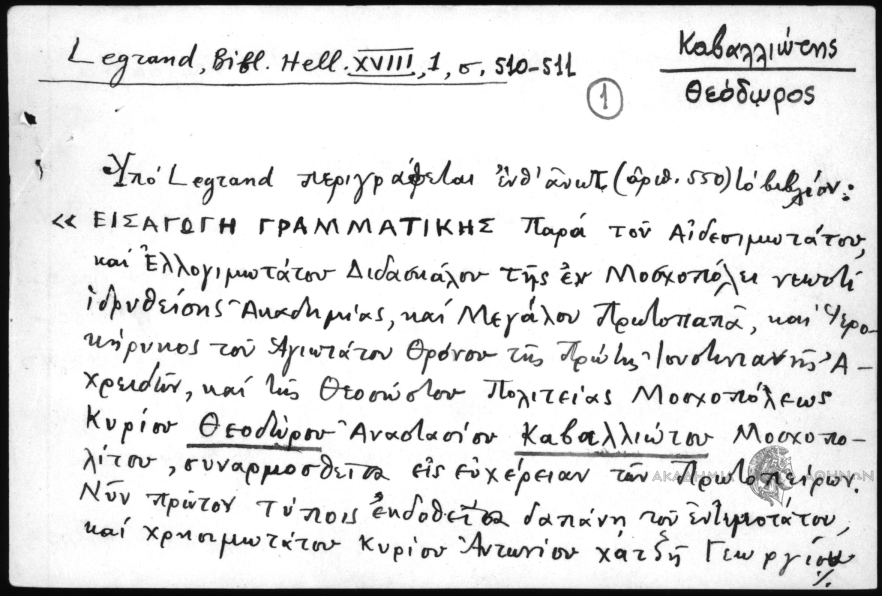 Legrand, Bibl. Hell. XVIII, 1, σ. 510-511
Καβαλλιώτης
Θεόδωρος
1
Ὑπό Legrand περιγράφεται ἐνθ' ἀνωτ. (ἀριθ. 550) τό βιβλίον:
« ΕΙΣΑΓΩΓΗ ΓΡΑΜΜΑΤΙΚΗΣ Παρά τοῦ Αἰδεσιμωτάτου,
καί Ἐλλογιμωτάτου Διδασκάλου τῆς ἐν Μοσχοπόλει νεωστί
ἱδρυθείσης Ἀκαδημίας, καί Μεγάλου Πρωτοπαπᾶ, καί Ἱερο-
κήρυκος τοῦ Ἁγιωτάτου Θρόνου τῆς Πρώτης Ἰουστινιανῆς Ἀ-
χρειδῶν, καί τῆς Θεοσώστου Πολιτείας Μοσχοπόλεως
Κυρίου Θεοδώρου Ἀναστασίου Καβαλλιώτου Μοσχοπο-
λίτου, συναρμοσθεῖσα εἰς εὐχέρειαν τῶν Πρωτοπείρων.
Νῦν πρῶτον τύποις ἐκδοθεῖσα δαπάνῃ τοῦ ἐντιμοτάτου,
καί χρησιμωτάτου Κυρίου Ἀντωνίου χάτζῆ Γεωργίου
./.
ΑΚΑΔΗΜΙΑ ΑΘΗΝΩΝ